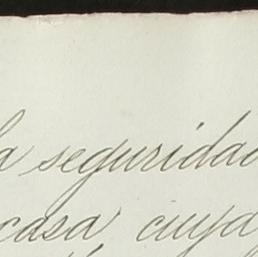 la seguridad
casa cuya